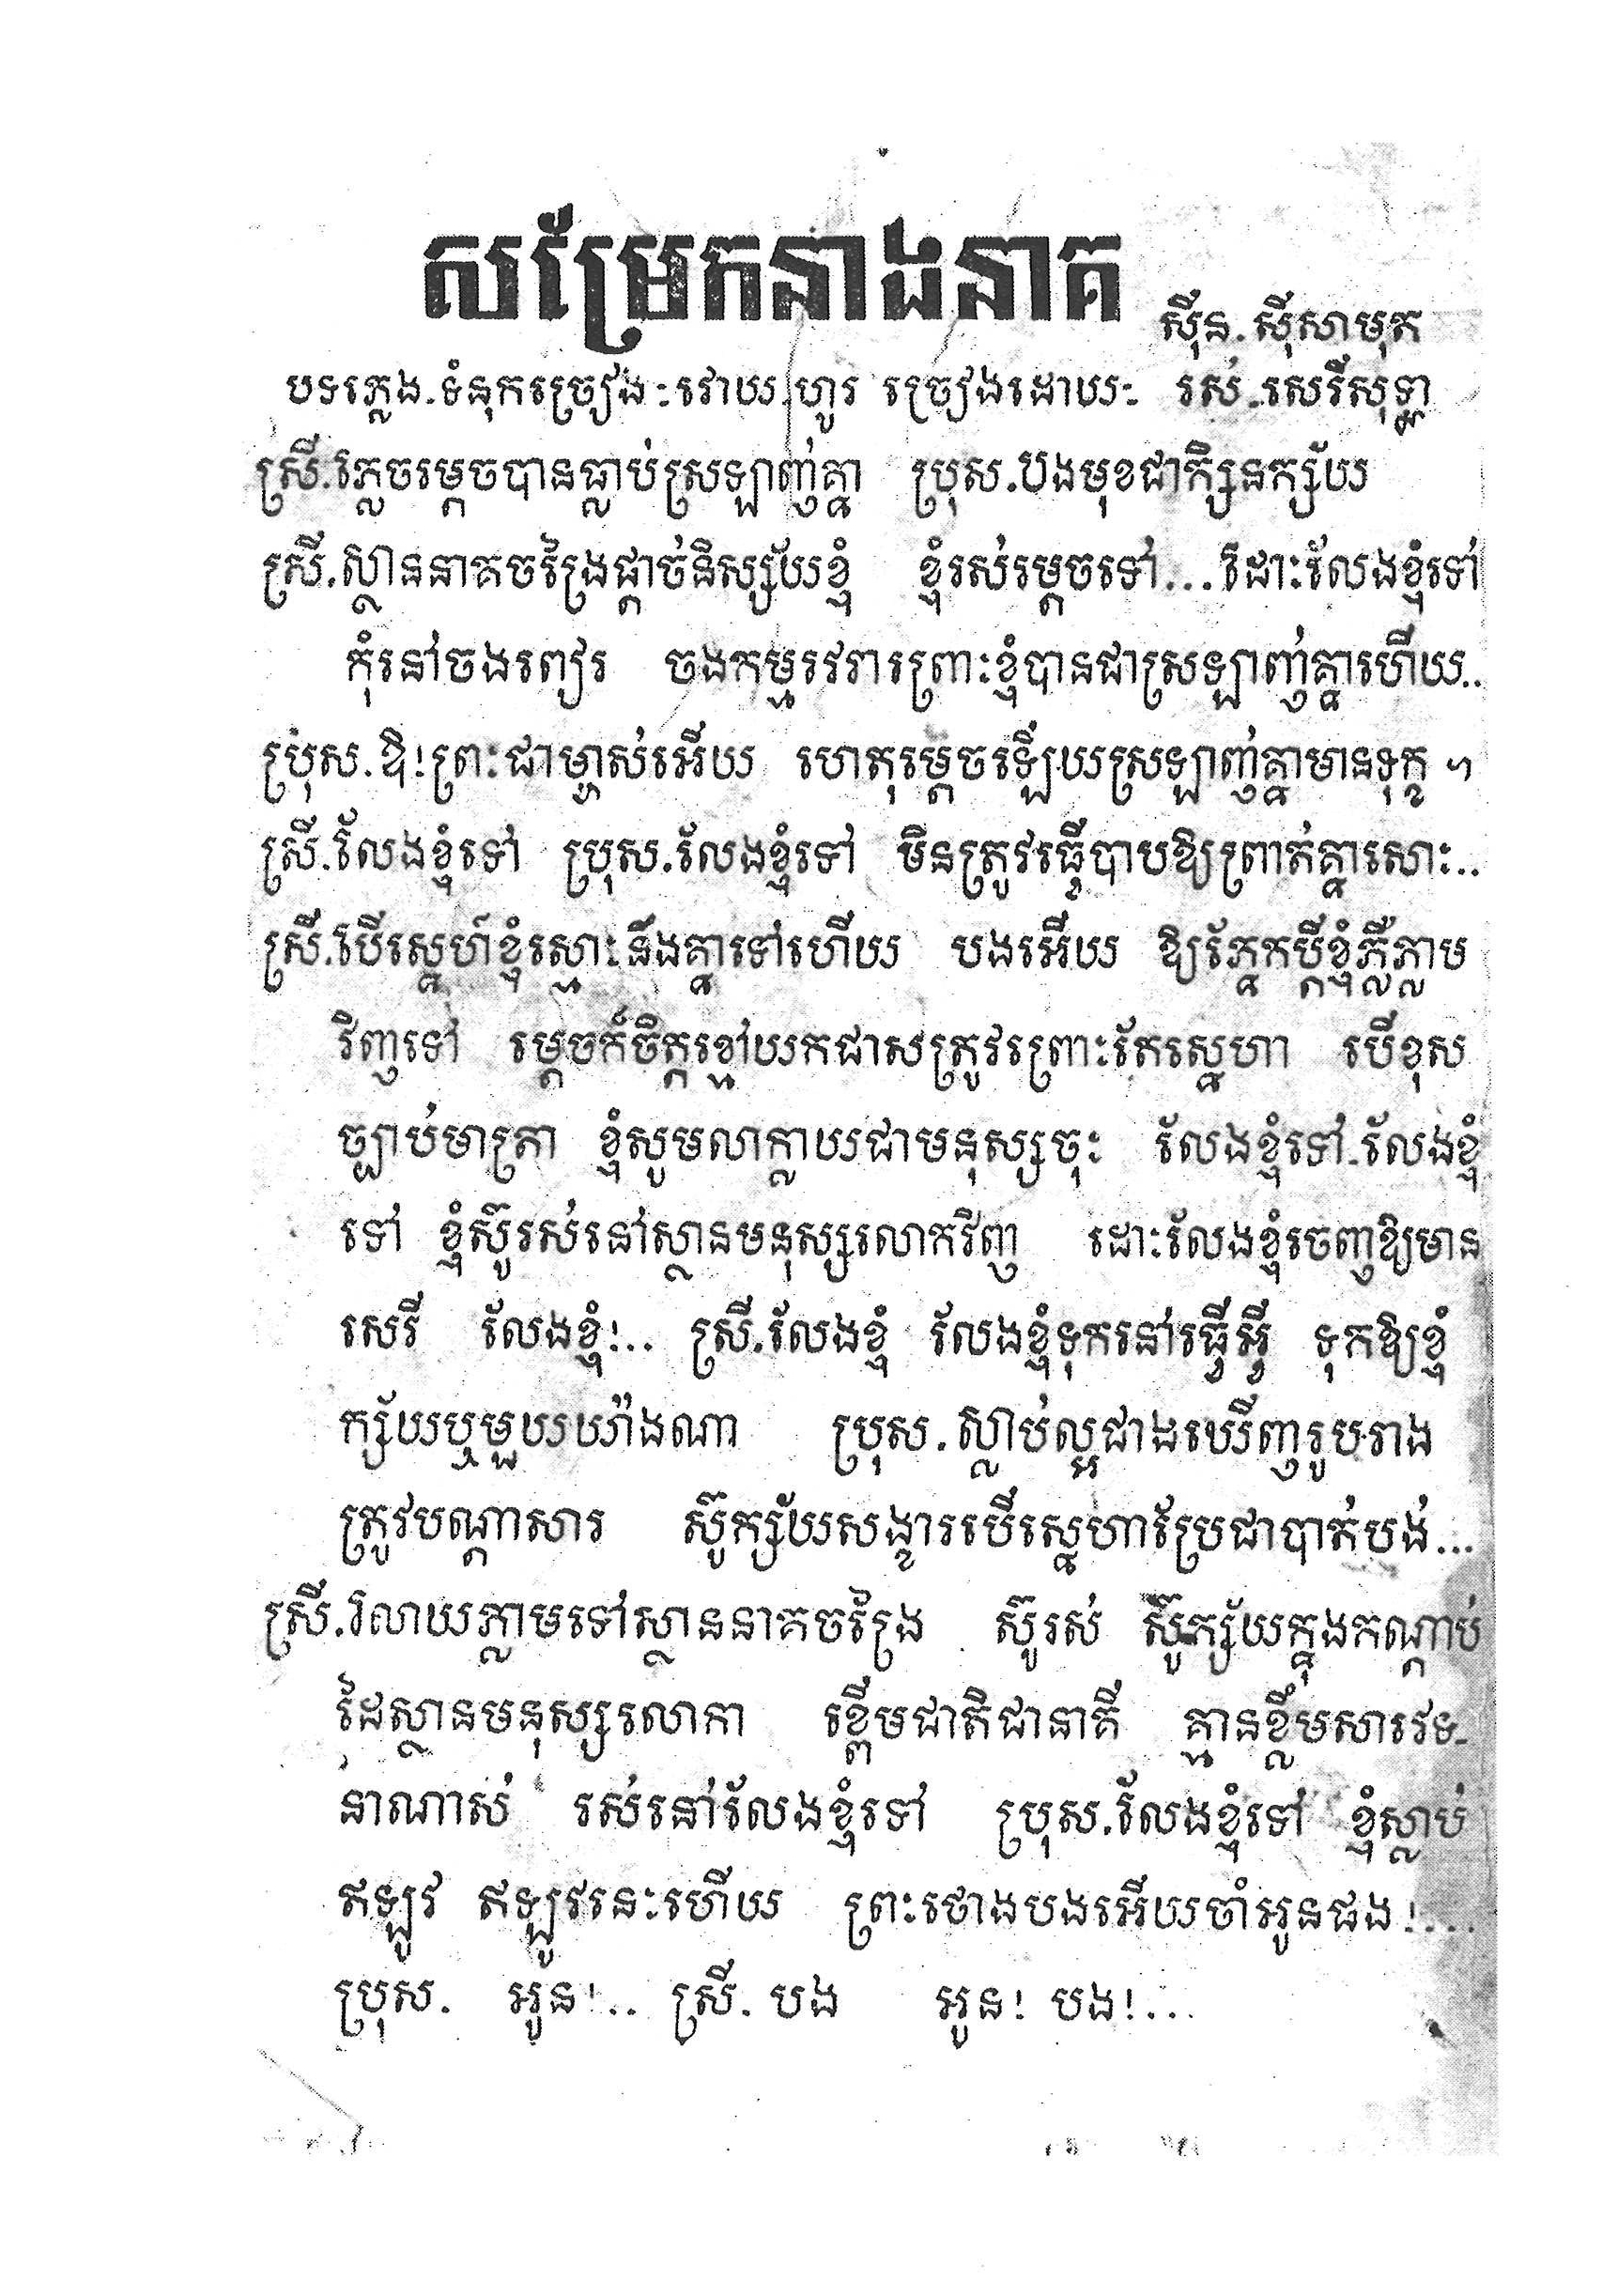 សម្រែកនាងនាគ
ស៊ីន.ស៊ីសាមុត
បទភ្លេង.ទំនុកច្រៀង:វោយ.ហូរ ច្រៀងដោយ: រស់.សេរីសុទ្ធា
ស្រី.ភ្លេចម្ដេចបានធ្លាប់ស្រឡាញ់គ្នា ប្រុស.បងមុខជាក្សិនក្ស័យ
ស្រី.ស្ថាននាគចង្រៃផ្ដាច់និស្ស័យខ្ញុំ ខ្ញុំរស់ម្ដេចទៅ...ដោះលែងខ្ញុំទៅ
កុំនៅចងពៀរ ចងកម្មវេរាព្រោះខ្ញុំបានជាស្រឡាញ់គ្នាហើយ..
ប្រុស.ឱ!ព្រះជាម្ចាស់អើយ ហេតុម្ដេចឡើយស្រឡាញ់គ្នាមានទុក្ខ ។
ស្រី.លែងខ្ញុំទៅ ប្រុស.លែងខ្ញុំទៅ មិនត្រូវធ្វើបាបឱ្យព្រាត់គ្នាសោះ..
ស្រី.បើស្នេហ៍ខ្ញុំស្មោះនឹងគ្នាទៅហើយ បងអើយ ឱ្យភ្នែកប្ដីខ្ញុំភ្លឺភ្លាម
វិញទៅ ម្ដេចក៏ចិត្តខ្មៅយកជាសត្រូវព្រោះតែស្នេហា បើខុស
ច្បាប់មាត្រា ខ្ញុំសូមលាក្លាយជាមនុស្សចុះ លែងខ្ញុំទៅ.លែងខ្ញុំ
ទៅ ខ្ញុំស៊ូរស់នៅស្ថានមនុស្សលោកវិញ ដោះលែងខ្ញុំចេញឱ្យមាន
សេរី លែងខ្ញុំ!.. ស្រី.លែងខ្ញុំ លែងខ្ញុំទុកនៅធ្វើអ្វី ទុកឱ្យខ្ញុំ
ក្ស័យឬមួយយ៉ាងណា ប្រុស.ស្លាប់ល្អជាងឃើញរូបរាង
ត្រូវបណ្ដាសារ ស៊ូក្ស័យសង្ខារបើស្នេហាប្រែជាបាត់បង់...
ស្រី.រលាយភ្លាមទៅស្ថាននាគចង្រៃ ស៊ូរស់ ស៊ូក្ស័យក្នុងកណ្ដាប់
ដៃស្ថានមនុស្សលោកា ខ្ពើមជាតិជានាគី គ្មានខ្លឹមសារវេទ-
នាណាស់ រស់នៅលែងខ្ញុំទៅ ប្រុស.លែងខ្ញុំទៅ ខ្ញុំស្លាប់
ឥឡូវ ឥឡូវនេះហើយ ព្រះថោងបងអើយចាំអូនផង!...
ប្រុស. អូន!.. ស្រី. បង អូន! បង!...